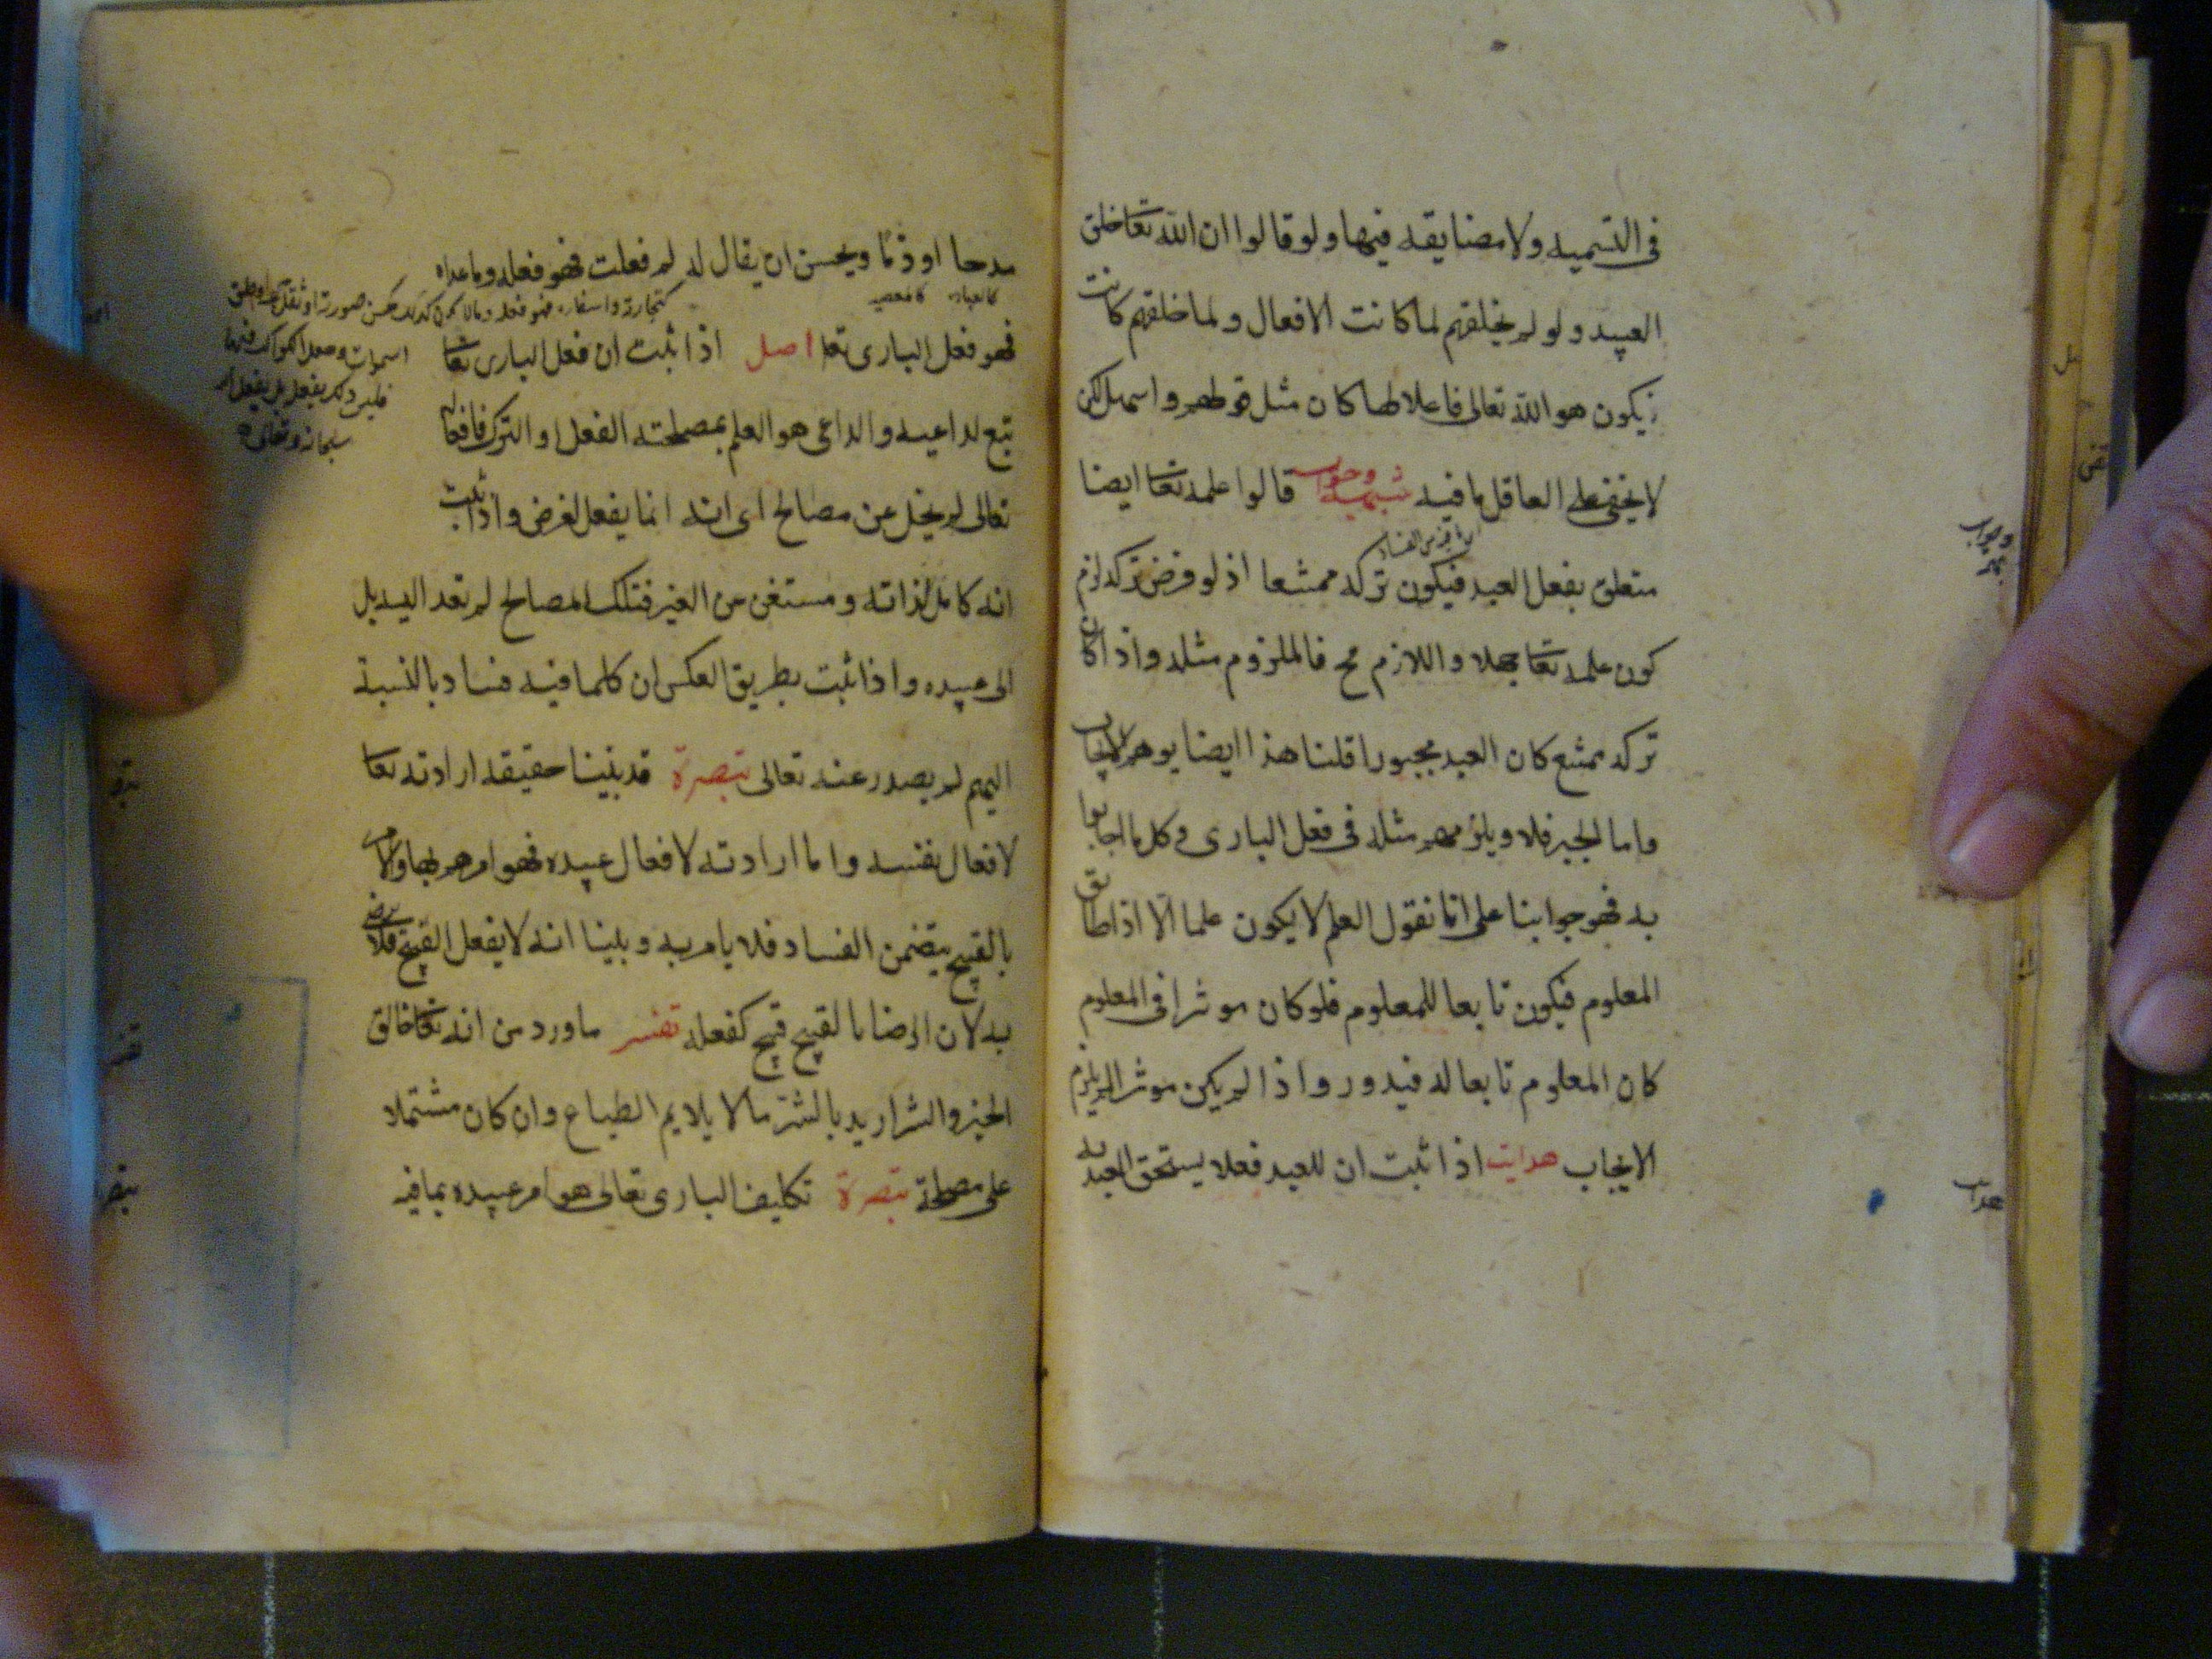 في التسميه ولا مضايقه فيها ولو قالوا ان الله تعا خلق
العبيد ولو لم يخلقهم لما كانت الافعال ولما خلقهم كانت
يكون هو الله تعالى فاعلا لها كان مثل قولهم واسهل لكن
لا يخفى على العاقل ما فيه شبهة وجواب قالوا علمه تعا ايضا
متعلق بفعل العبد فيكون تركه ممتنعا اذ لو فرض تركه لزم
كون علمه تعا جهلا واللازم مح فالملزوم مثله واذا كان
تركه ممتنع كان العبد مجبورا قلنا هذا ايضا يوهم الايجاب
واما الجبر فلا ويلزمهم مثله في فعل البارى وكل ما اجابوا
به فهو جوابنا على انا نقول العلم لا يكون علما الا اذا طابق
المعلوم فيكون تابعا للمعلوم فلو كان موثرا في المعلوم
كان المعلوم تابعا له فيدور واذا لم يكن موثرا لم يلزم
الايجاب هدايت اذا ثبت ان للعبد فعلا يستحق العبد به
وجواب
هدايت
مدحا او ذما ويحسن ان يقال له لم فعلت فهو فعله وما عداه
كالعباده كالمعصيه
فهو فعل البارى تعا اصل اذا ثبت ان فعل البارى تعا
تبع لداعيه والداعى هو العلم بمصلحته الفعل او الترك فافعاله
تعالى لم يخل عن مصالح اى انه انما يفعل لغرض واذا ثبت
انه كامل لذاته ومستغن من الغير فتلك المصالح لم تعد اليه بل
الى عبيده واذا ثبت بطريق العكس ان كلما فيه فساد بالنسبة
اليهم لم يصدر عنه تعالى تبصرة قد بينا حقيقه ارادته تعا
لافعال نفسه واما ارادته لافعال عبيده فهو امرهم بها والامر
بالقبيح يتضمن الفساد فلا يامر به وبينا انه لا يفعل القبيح فلا يرضى
به لان الرضا بالقبيح قبيح كفعله تفسير ما ورد من انه تعا خالق
الخير والشر اريد بالشر ما لا يلايم الطباع وان كان مشتملا
على مصلحة تبصرة تكليف البارى تعالى هو امر عبيده بما فيه
سبحانه وتعالى